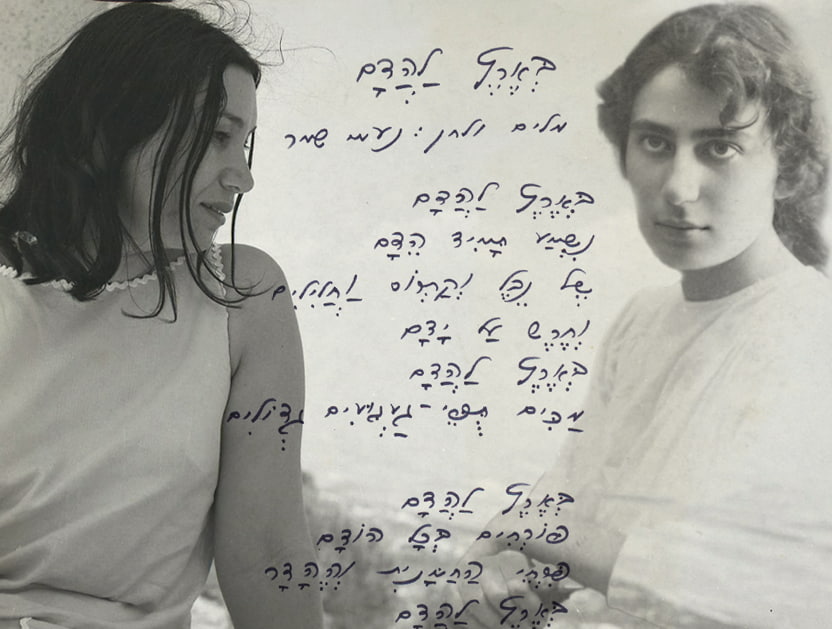 בְּאֶרֶץ לַהֲדָם
מלים ולחן : נעמי שמר
בְּאֶרֶץ לַהֲדָם
נִשְׁמַע תָּמִיד הֵדָם
שֶׁל נֵבֶל וְקַתְרוֹס וַחֲלִילִים
וְחֶרֶשׁ עַל יָדָם
בְּאֶרֶץ לַהֲדָם
מַכִּים תֻּפֵּי-גַּעְגּוּעִים גְּדוֹלִים
בְּאֶרֶץ לַהֲדָם
פּוֹרְחִים בְּטַל הוֹדָם
פִּרְחֵי הַחַמָּנִית וְהֶהָדָר
בְּאֶרֶץ לַהֲדָם